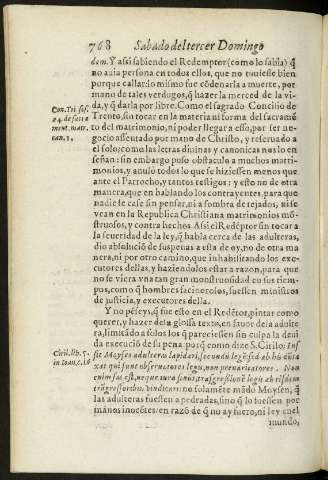 768 Sabado del tercer Domingo
dem. Y assi sabiendo el Redemptor (como lo sabia) q̃
no auia persona en todos ellos, que no tuuiesse bien
porque callar: lo mismo fue cõdenarla a muerte, por
mano de tales verdugos, q̃ hazer la merced de la vi-
da, y q̃ darla por libre. Como el sagrado Concilio de
Con. Tri ses.
24. de sacra
ment. matr.
can. 1.
Trento, sin tocar en la materia ni forma del sacramẽ
to del matrimonio, ni poder llegar a esso, por ser ne-
gocio assentado por mano de Christo, y reseruado a
el solo: como las letras diuinas y canonicas nos lo en
señan: sin embargo puso obstaculo a muchos matri-
monios, y anulò todos lo que se hiziessen menos que
ante el Parrocho, y tantos testigos: y esto no de otra
manera, que en hablando los contrayentes, para que
nadie se case sin pensar, ni a sombra de tejados, ni se
vean en la Republica Christiana matrimonios mõ-
struosos, y contra hechos. Assi el Redẽptor sin tocar a
la seueridad de la ley, q̃ habla cerca de las adulteras,
dio absoluciõ de suspenas a esta de oy, no de otra ma
nera, ni por otro camino, que inhabilitando los exe-
cutores dellas, y haziendolos estar a razon, para que
no se viera vna tan gran monstruosidad en sus tiem-
pos, como q̃ hombres facinerosos, fuessen ministros
de justicia, y executores della.
Y no pẽseys, q̃ fue esto en el Redẽtor, pintar como
querer, y hazer dela glossa texto, en fauor dela adulte
ra, limitãdo a solos los q̃ pareciessen sin culpa la deuida
execuciõ de su pena, porq̃ como dize S. Cirilo: Ius-
Ciril. lib. 5.
in Ioan. c. 18
sit Moyses adulteros lapidari, secundũ legẽ, sed ab his
qui sunt obseruatores legis, non preuaricatores. Non
enim fas est, neque iura sinũt, trãsgressionẽ legis ab eisdem
trãsgressoribus vindicare: no solamẽte mãdò Moysen, q̃
las adulteras fuessen a pedradas, sino q̃ lo fuessen por
manos inocẽtes: en razõ de q̃ no ay fuero, ni ley en el
mundo,